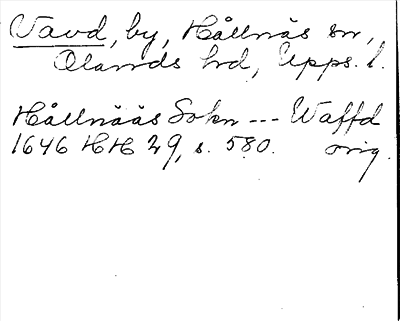 Vavd, by, Hållnäs sn,
Olands hd, Upps. l.
Hållnääs Sokn --- Waffd
1646 HH 29, s. 580. orig.